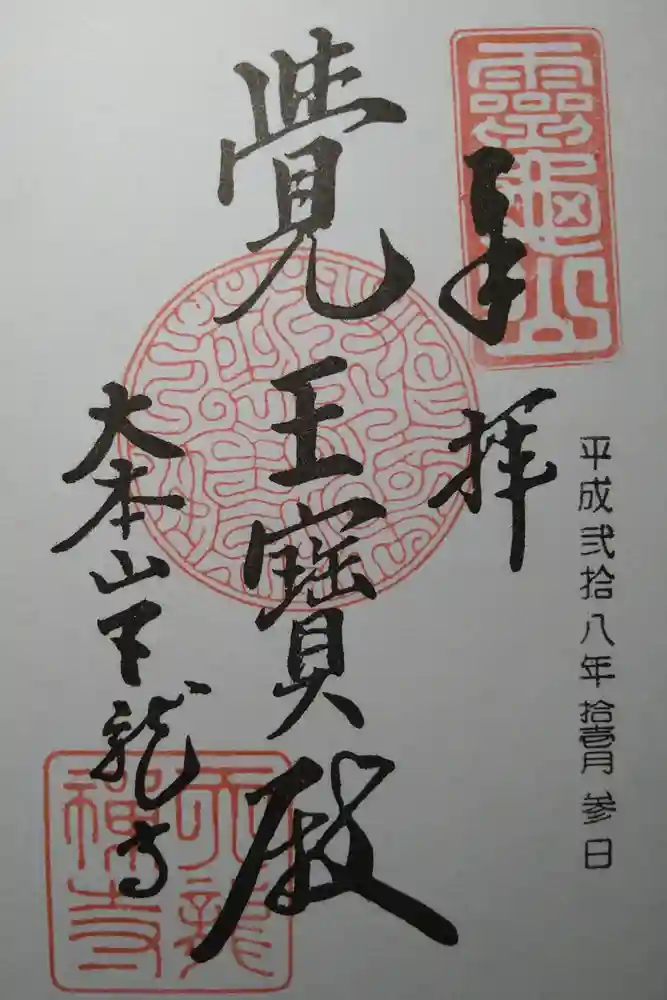 靈龜山
奉拝
平成弐拾八年拾壹月参日
覺王寶殿
大本山天龍寺
天龍
禪寺